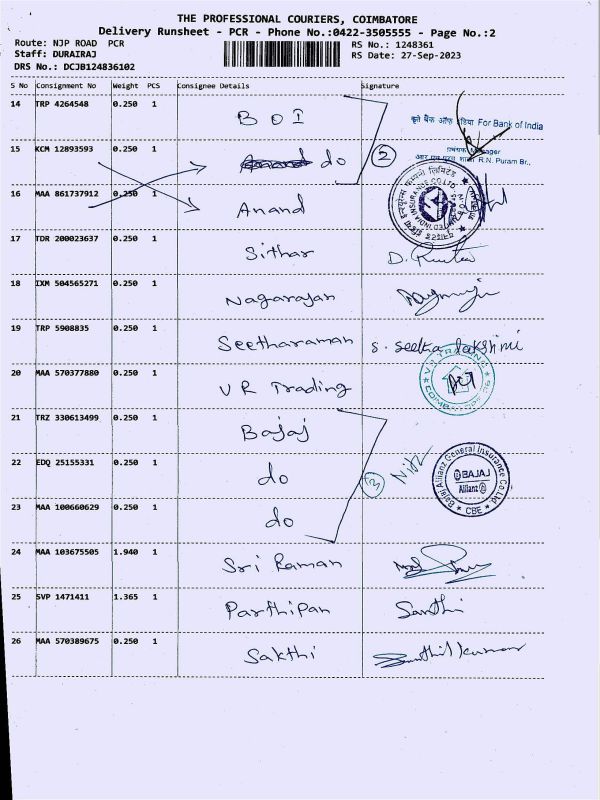 THE PROFESSIONAL COURIERS, COIMBATORE
Delivery Runsheet - PCR - Phone No.:0422-3505555 - Page No.:2
Route: NJP ROAD PCR
RS No.: 1248361
Staff: DURAIRAJ
RS Date: 27-Sep-2023
DRS No.: DCJB124836102
S No Consignment No Weight PCS Consignee Details Signature
14 TRP 4264548 0.250 1 BOI
For Bank of India
15 KCM 12893593 0.250 1 Anand do 2
Manager
R.N. Puram Br.,
16 MAA 861737912 0.250 1 Anand
17 TDR 200023637 0.250 1 Sithar
18 IXM 504565271 0.250 1 Nagarajan
19 TRP 5908835 0.250 1 Seetharaman S. Seetha lakshmi
20 MAA 570377880 0.250 1 VR Trading
21 TRZ 330613499 0.250 1 Bajaj
22 EDQ 25155331 0.250 1 do 3
Bajaj Allianz General Insurance Co.Ltd
BAJAJ
Allianz
CBE
23 MAA 100660629 0.250 1 do
24 MAA 103675505 1.940 1 Sri Raman
25 SVP 1471411 1.365 1 Parthipan Santhi
26 MAA 570389675 0.250 1 Sakthi Senthil kumar